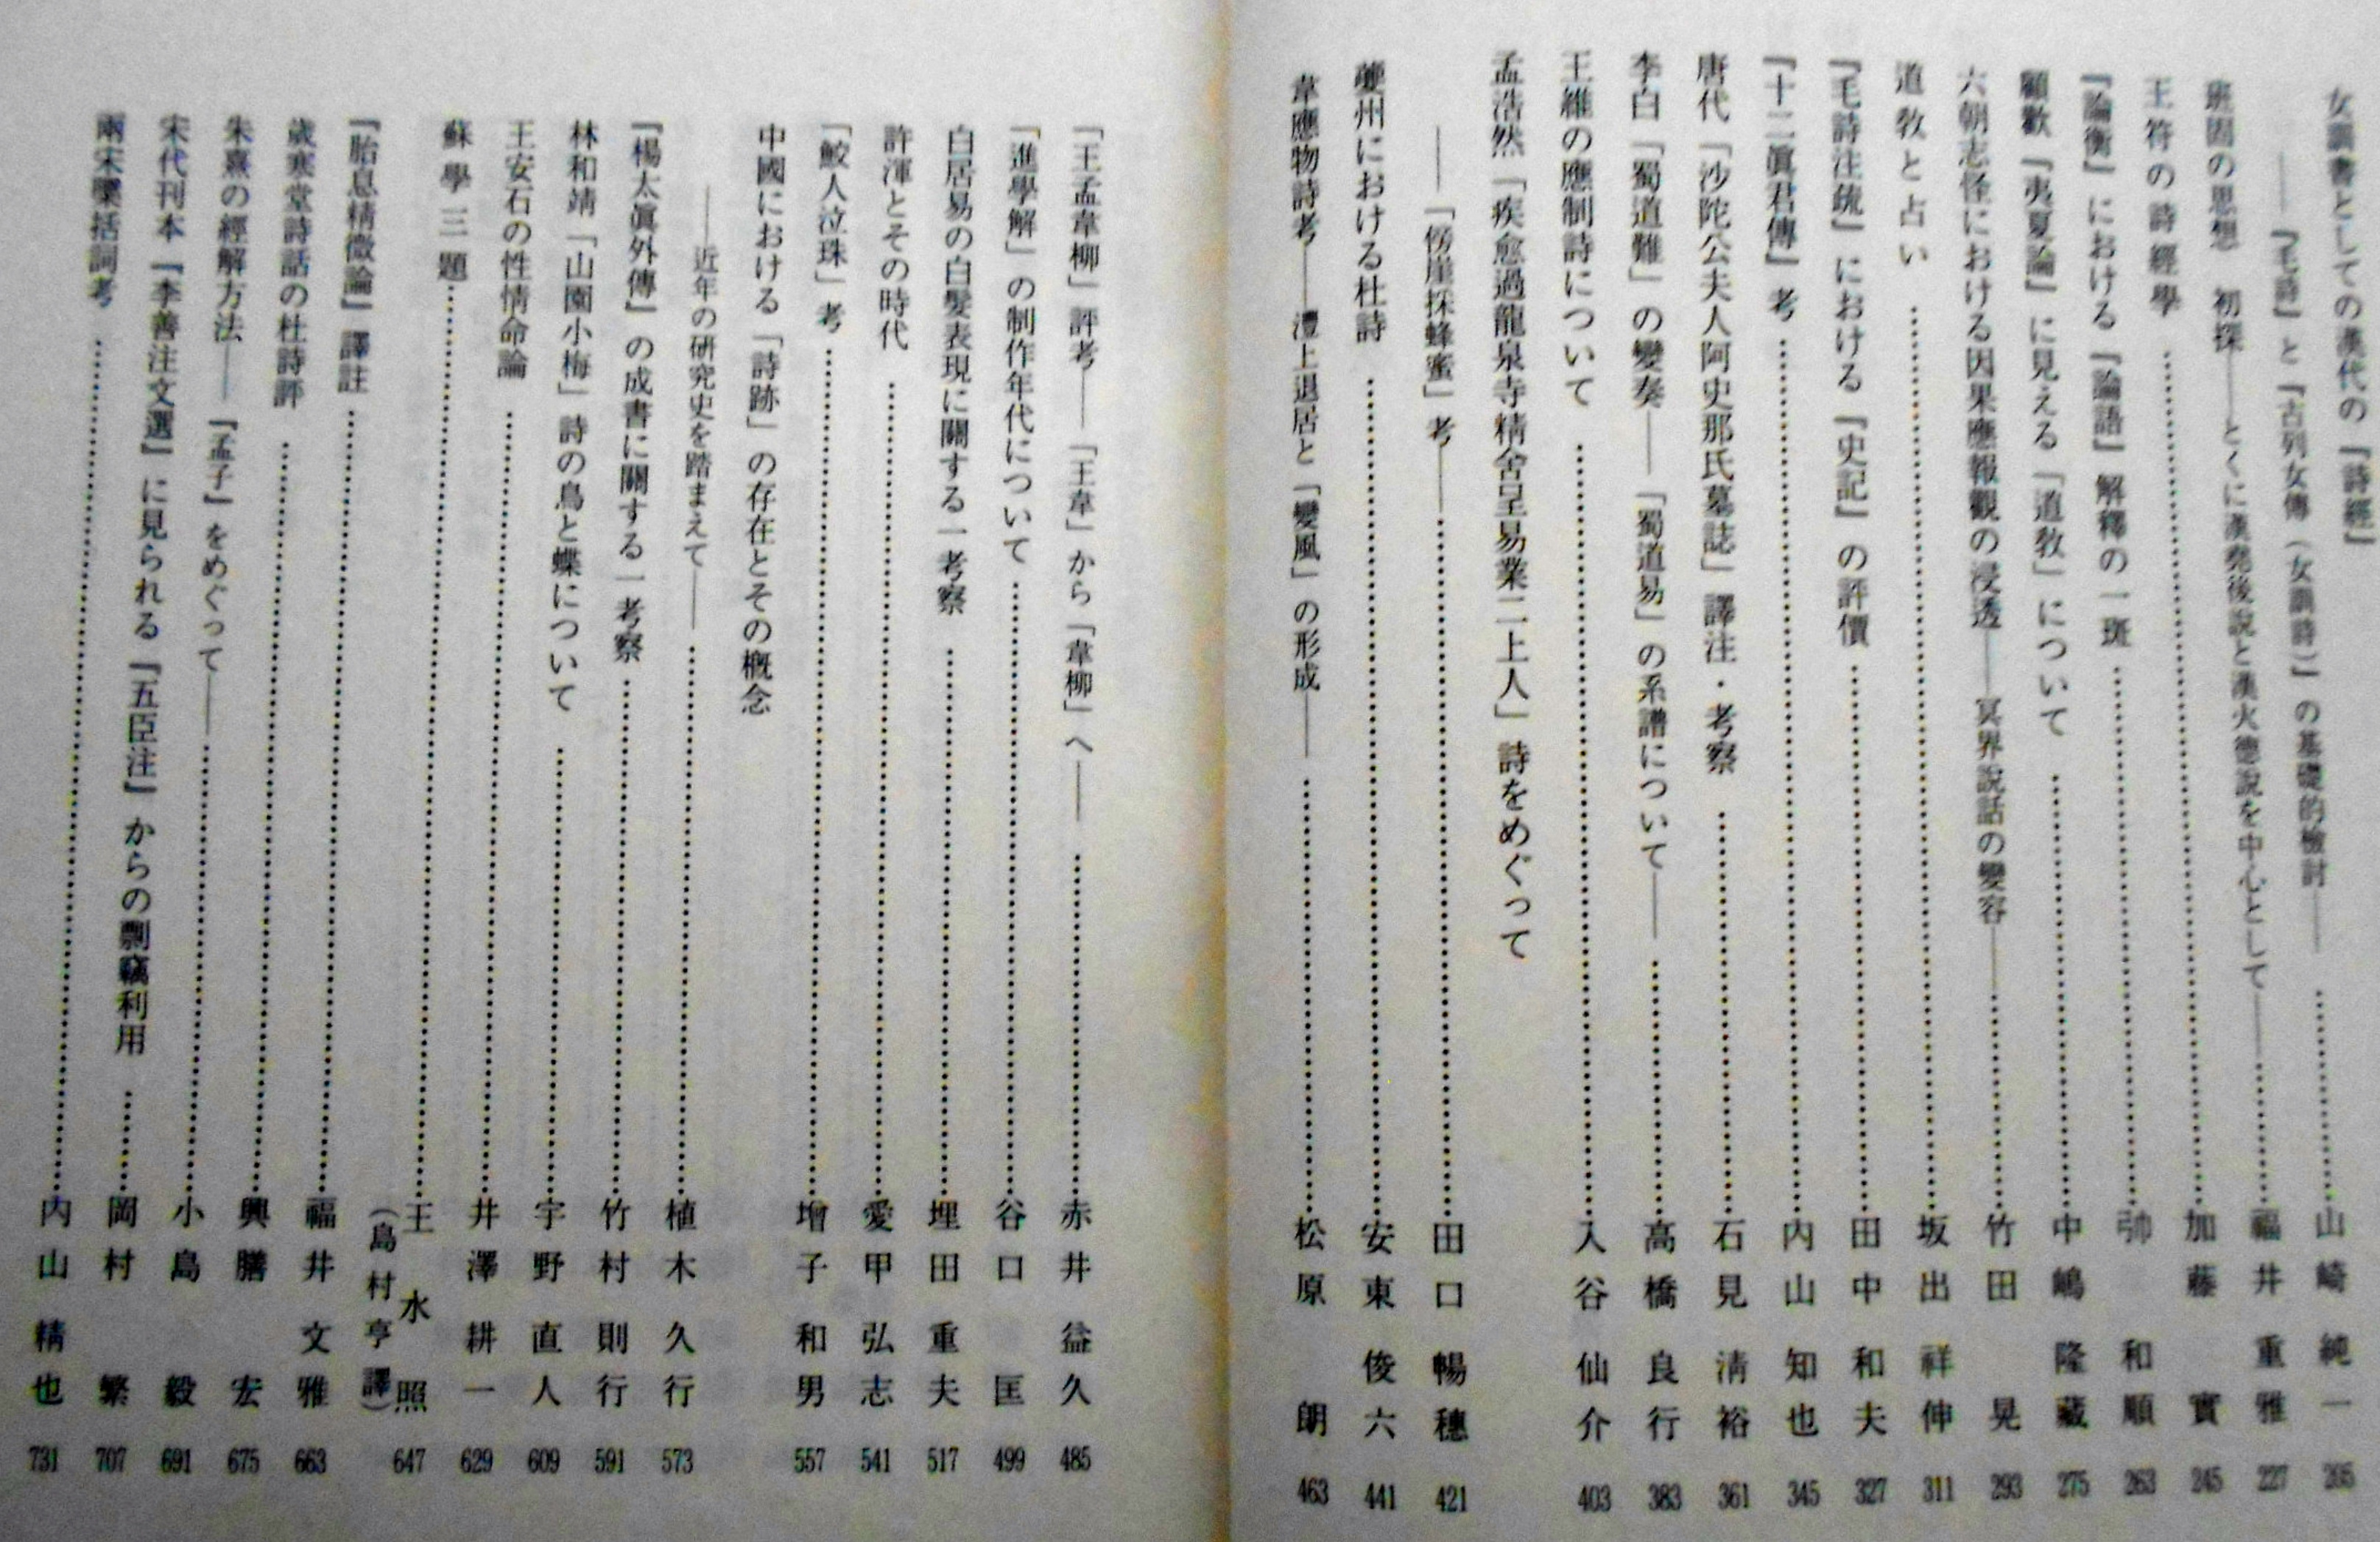 女訓書としての漢代の『詩經』
――『毛詩』と『古列女傳（女訓詩）』の基礎的檢討――……山崎純一 205
班固の思想 初探――とくに漢堯後說と漢火德說を中心として――……福井重雅 227
王符の詩經學……加藤實 245
『論衡』における『論語』解釋の一斑……弭和順 263
顧歡『夷夏論』に見える「道敎」について……中嶋隆藏 275
六朝志怪における因果應報觀の浸透――冥界說話の變容――……竹田晃 293
道敎と占い……坂出祥伸 311
『毛詩注疏』における『史記』の評價……田中和夫 327
『十二眞君傳』考……内山知也 345
唐代「沙陀公夫人阿史那氏墓誌」譯注・考察……石見淸裕 361
李白「蜀道難」の變奏――「蜀道易」の系譜について――……高橋良行 383
王維の應制詩について……入谷仙介 403
孟浩然「疾愈過龍泉寺精舍呈易業二上人」詩をめぐって
――「傍崖採蜂蜜」考――……田口暢穗 421
夔州における杜詩……安東俊六 441
韋應物詩考――灃上退居と「變風」の形成――……松原朗 463
「王孟韋柳」評考――「王韋」から「韋柳」へ――……赤井益久 485
「進學解」の制作年代について……谷口匡 499
白居易の白髮表現に關する一考察……埋田重夫 517
許渾とその時代……愛甲弘志 541
「鮫人泣珠」考……增子和男 557
中國における「詩跡」の存在とその槪念
――近年の硏究史を踏まえて――……植木久行 573
『楊太眞外傳』の成書に關する一考察……竹村則行 591
林和靖「山園小梅」詩の鳥と蝶について……宇野直人 609
王安石の性情命論……井澤耕一 629
蘇學三題……王水照 647
（島村亨 譯）
『胎息精微論』譯註……福井文雅 663
歲寒堂詩話の杜詩評……興膳宏 675
朱熹の經解方法――『孟子』をめぐって――……小島毅 691
宋代刊本『李善注文選』に見られる『五臣注』からの剽竊利用……岡村繁 707
兩宋檃括詞考……内山精也 731